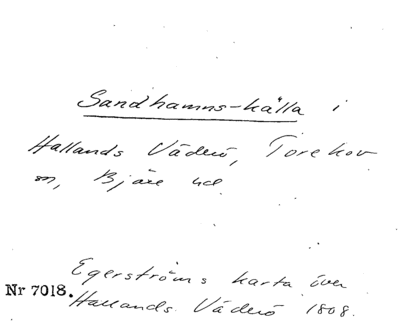 Sandhamns-källa i
Hallands Väderö, Torekov
sn, Bjäre hd
Egerströms karta över
Nr 7018. Hallands Väderö 1808.